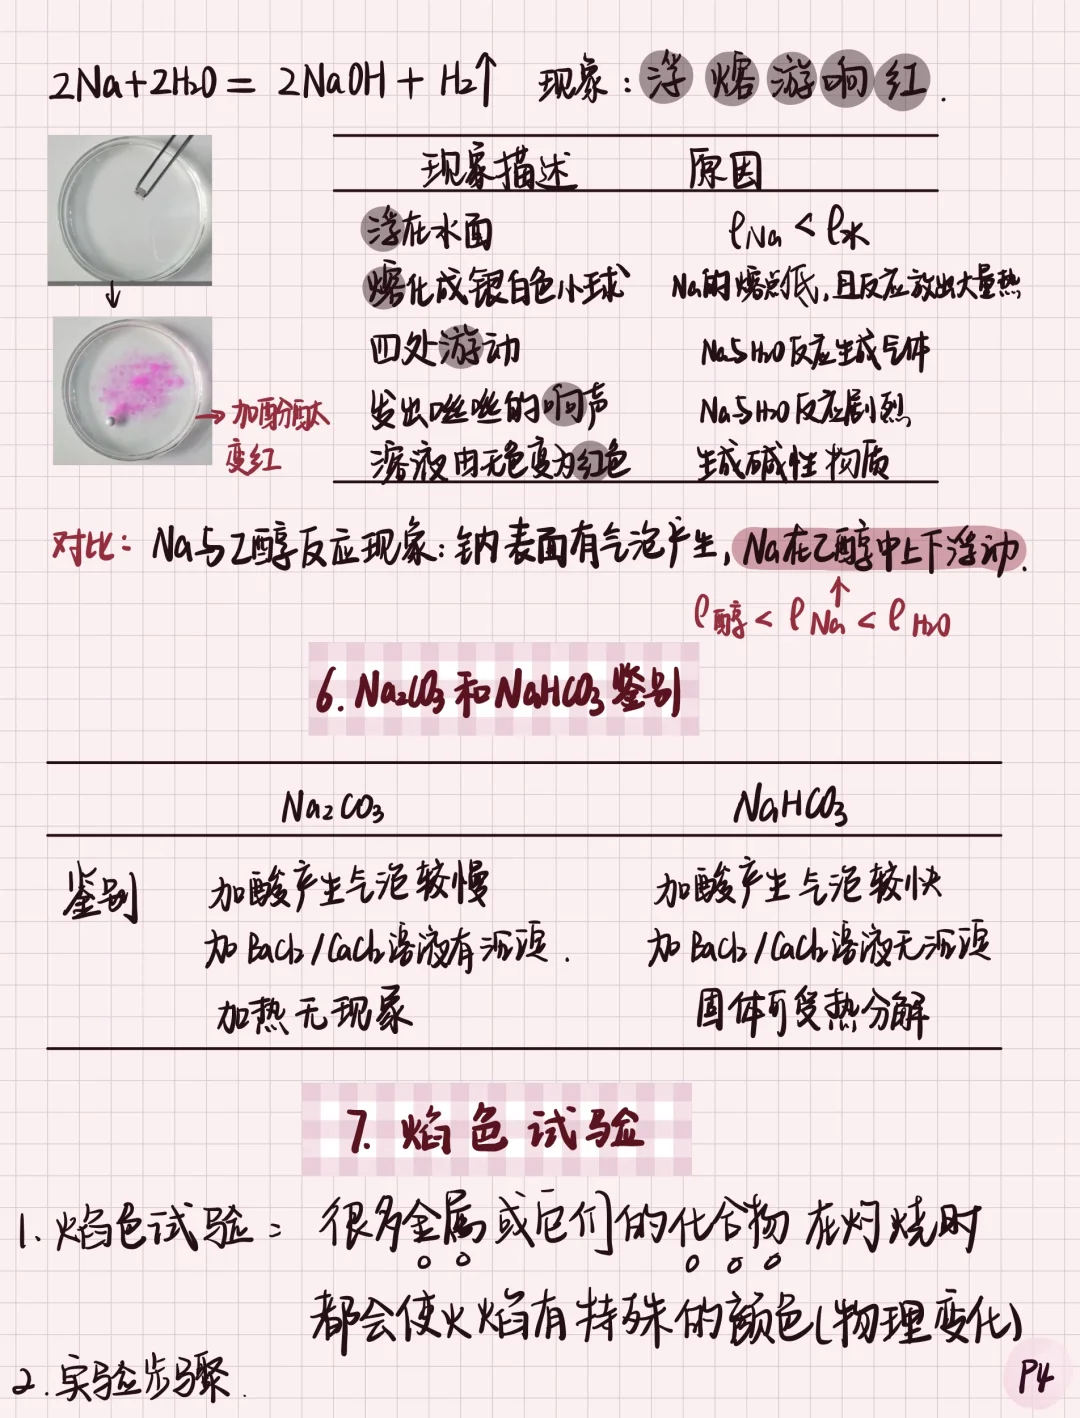 2Na+2H₂O = 2NaOH + H₂↑ 现象：浮 熔 游 响 红.
现象描述 原因
浮在水面 ρNa < ρ水
熔化成银白色小球 Na的熔点低，且反应放出大量热
四处游动 Na与H₂O反应生成气体
发出咝咝的响声 Na与H₂O反应剧烈
溶液由无色变为红色 生成碱性物质
→ 加酚酞
变红
对比：Na与乙醇反应现象：钠表面有气泡产生，Na在乙醇中上下浮动.
ρ醇 < ρNa < ρH₂O
6. Na₂CO₃和NaHCO₃鉴别
Na₂CO₃ NaHCO₃
鉴别 加酸产生气泡较慢 加酸产生气泡较快
加BaCl₂/CaCl₂溶液有沉淀. 加BaCl₂/CaCl₂溶液无沉淀
加热无现象 固体可受热分解
7. 焰色试验
1. 焰色试验： 很多金属或它们的化合物在灼烧时
都会使火焰有特殊的颜色(物理变化)
2. 实验步骤.
P4